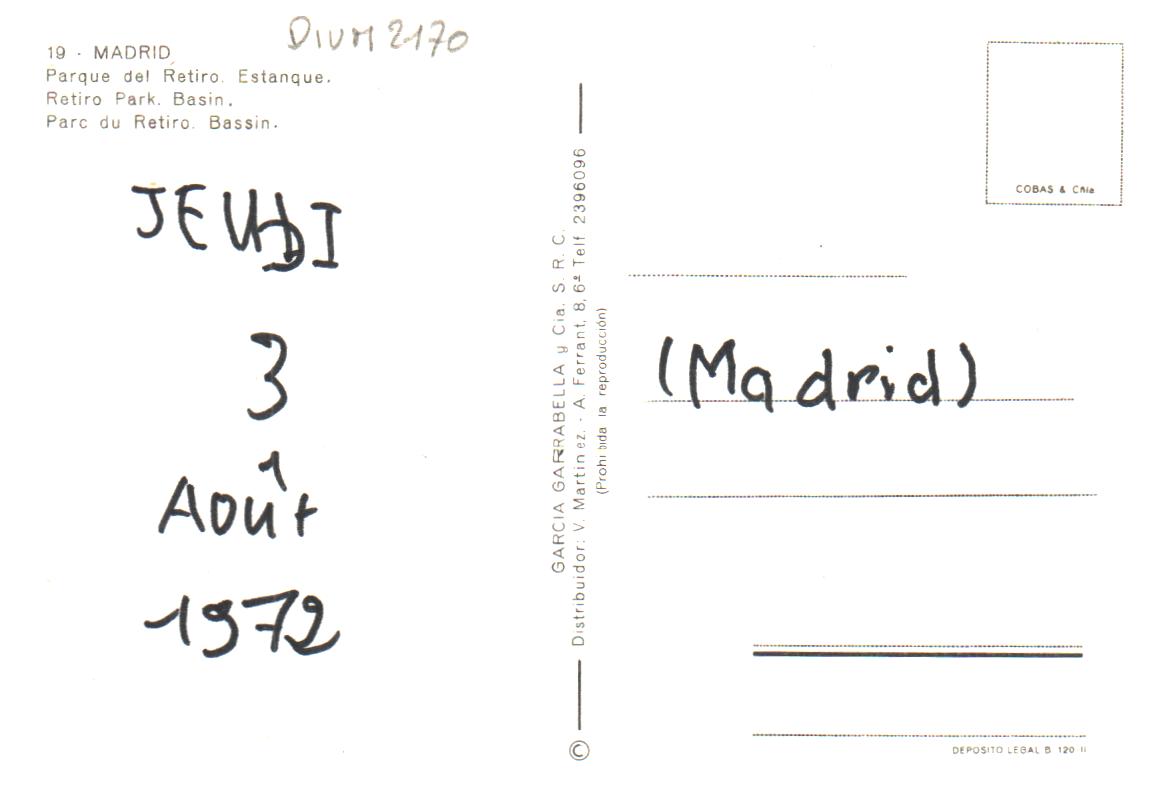 DIVM 2170
19 - MADRID
Parque del Retiro. Estanque.
Retiro Park. Basin.
Parc du Retiro. Bassin.
JEUDI
3
Août
1972
GARCIA GARRABELLA y Cia. S. R. C.
Distribuidor: V. Martinez. - A. Ferrant, 8, 6º Telf 2396096
(Prohibida la reproducción)
COBAS & Cñia
(Madrid)
©
DEPOSITO LEGAL B 120 II